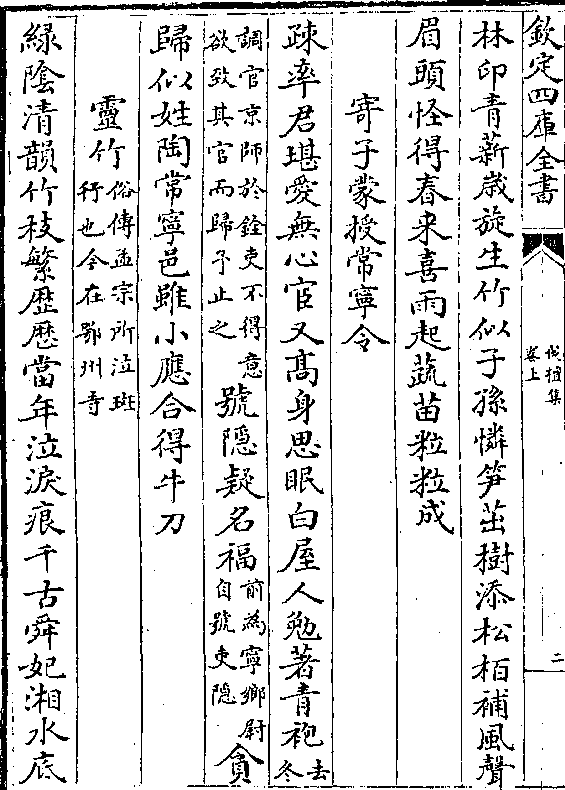 欽定四庫全書
伐檀集
卷上
二
林卬青薪歳旋生竹似子孫憐笋茁樹添松柏補風聲
眉頭怪得春来喜雨起蔬苗粒粒成
寄子蒙授常寧令
疎率君堪愛無心宦又髙身思眠白屋人勉著青袍去冬
調官京師於銓吏不得意欲致其官而歸予止之號隠疑名福前為寧鄉尉自號吏隠貪
歸似姓陶常寧邑雖小應合得牛刀
靈竹俗傳孟宗所泣斑竹也今在鄂州寺
緑陰清韻竹枝繁歴歴當年泣淚痕千古舜妃湘水底